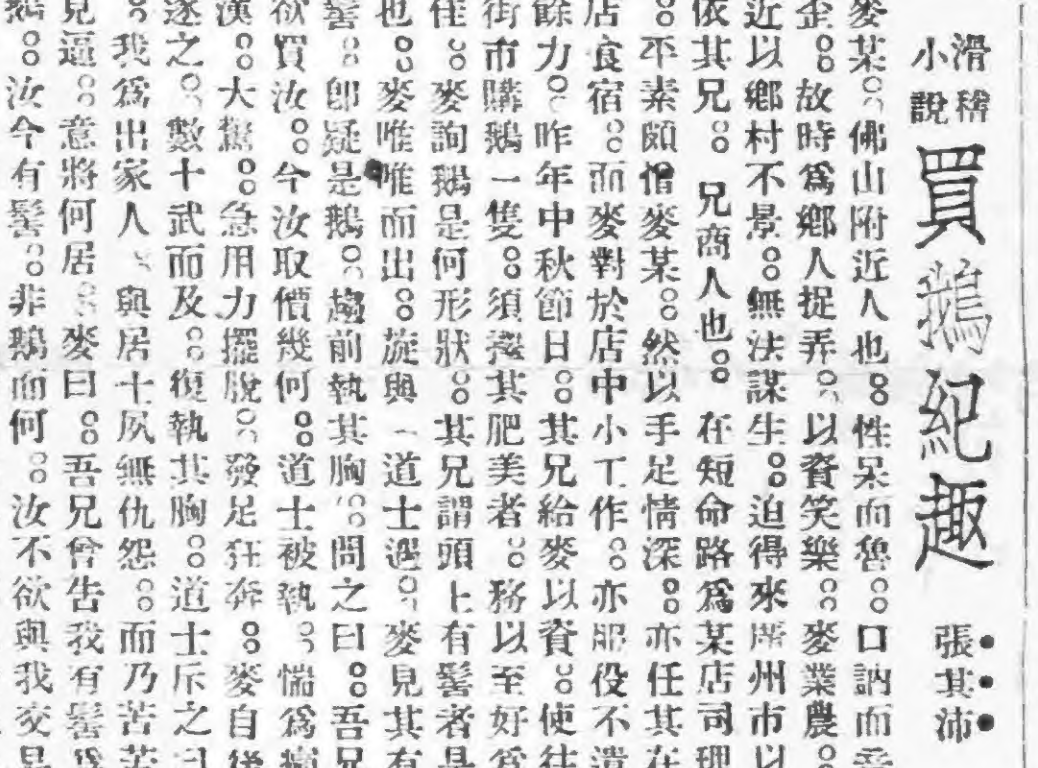 滑稽
小說
買鵝紀趣
張其沛
麥某。佛山附近人也。性呆而魯。口訥而
歪。故時爲鄉人捉弄。以資笑樂。麥業農。
近以鄉村不景。無法謀生。迫得來廣州市以
依其兄。兄商人也。在短命路爲某店司理
。平素頗憎麥某。然以手足情深。亦任其在
店食宿。而麥對於店中小工作。亦服役不遺
餘力。昨年中秋節日。其兄給麥以資。使往
街市購鵝一隻。須擇其肥美者。務以至好爲
佳。麥詢鵝是何形狀。其兄謂頭上有髻者是
也。麥唯唯而出。旋與一道士遇。麥見其有
髻。卽疑是鵝。趨前執其胸。問之曰。吾兄
欲買汝。今汝取價幾何。道士被執。惴爲
漢。大驚。急用力擺脫。發足狂奔。麥自後
逐之。數十武而及。復執其胸。道士斥之曰
。我爲出家人、與居士夙無仇怨。而乃苦苦
見逼。意將何居。麥曰。吾兄曾告我有髻爲
鵝。汝今有髻。非鵝而何。汝不欲與我交易